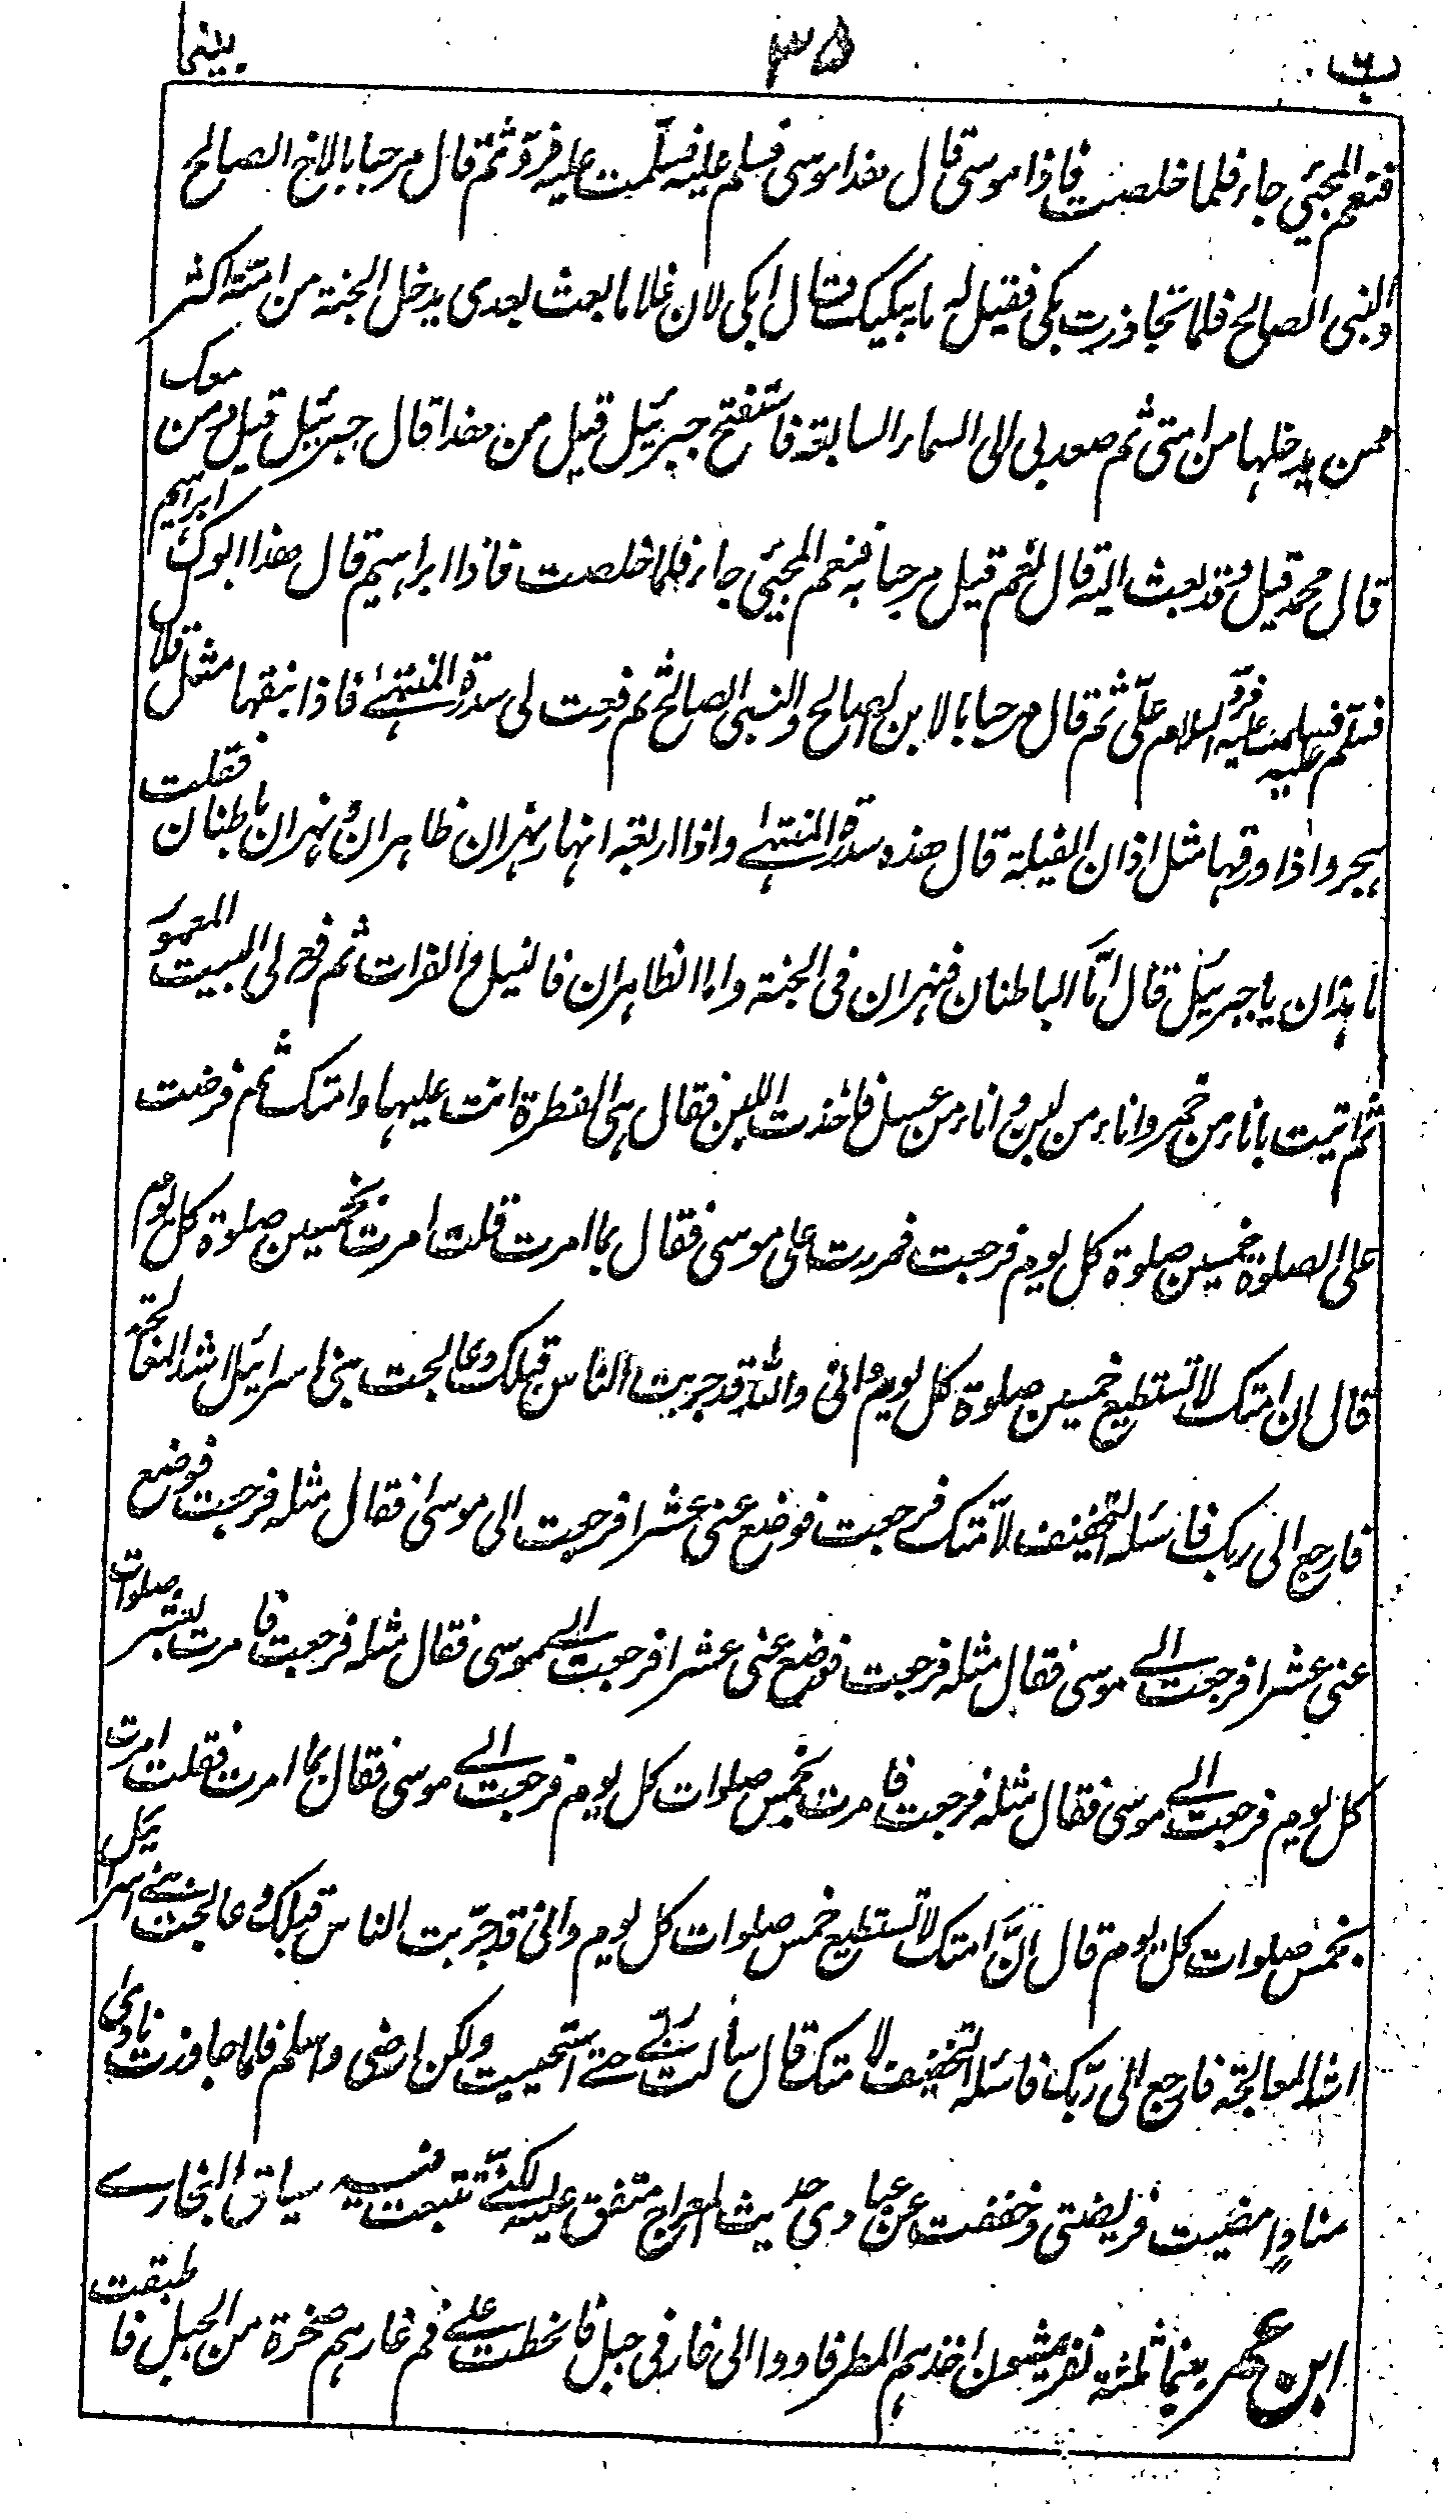 ب ٣٥ بينما
فنعم المجيئ جاء فلما خلصت فاذا موسى قال هذا موسى فسلم عليه فسلمت عليه فردّ ثم قال مرحبا بالاخ الصالح
والنبى الصالح فلما تجاوزت بكى فقيل له ما يبكيك قال ابكى لان غلاما بعث بعدى يدخل الجنة من امته اكثر
ممن يدخلها من امتى ثم صعد بى الى السماء السابعة فاستفتح جبرئيل قيل من هذا قال جبرئيل قيل ومن معك
قال محمد قيل وقد بعث اليه قال نعم قيل مرحبا به فنعم المجيئ جاء فلما خلصت فاذا ابراهيم قال هذا ابوك ابراهيم
فسلم عليه فسلمت عليه فردّ السلام علىّ ثم قال مرحبا بالابن الصالح والنبى الصالح ثم رفعت لى سدرة المنتهى فاذا نبقها مثل قلال
هجر واذا ورقها مثل اذان الفيلة قال هذه سدرة المنتهى واذا اربعة انهار نهران ظاهران ونهران باطنان فقلت
ما هذان يا جبرئيل قال امّا الباطنان فنهران فى الجنة واما الظاهران فالنيل والفرات ثم رفع لى البيت المعمور
ثم اتيت باناء من خمر واناء من لبن واناء من عسل فاخذت اللبن فقال هى الفطرة انت عليها وامتك ثم فرضت
على الصلوة خمسين صلوة كل يوم فرجعت فمررت على موسى فقال بما امرت قلت امرت بخمسين صلوة كل يوم
قال ان امتك لا تستطيع خمسين صلوة كل يوم وانى والله قد جربت الناس قبلك وعالجت بنى اسرائيل اشد المعالجة
فارجع الى ربك فاسئله التخفيف لامتك فرجعت فوضع عنى عشرا فرجعت الى موسى فقال مثله فرجعت فوضع
عنى عشرا فرجعت الى موسى فقال مثله فرجعت فوضع عنى عشرا فرجعت الى موسى فقال مثله فرجعت فامرت بعشر صلوات
كل يوم فرجعت الى موسى فقال مثله فرجعت فامرت بخمس صلوات كل يوم فرجعت الى موسى فقال بما امرت فقلت امرت
بخمس صلوات كل يوم قال انّ امتك لا تستطيع خمس صلوات كل يوم وانى قد جرّبت الناس قبلك وعالجت بنى اسرائيل
اشد المعالجة فارجع الى ربّك فاسئله التخفيف لامتك قال سألت ربّى حتى استحييت ولكن ارضى واسلم فلما جاوزت نادى
منادٍ امضيت فريضتى وخففت عن عبادى حديث المعراج متفق عليه لكنّى تتبعت فيه سياق البخارى
ابن عمر بينما ثلثة نفر يمشون اخذهم المطر فاووا الى غار فى جبل فانحطت على فم غارهم صخرة من الجبل فاطبقت